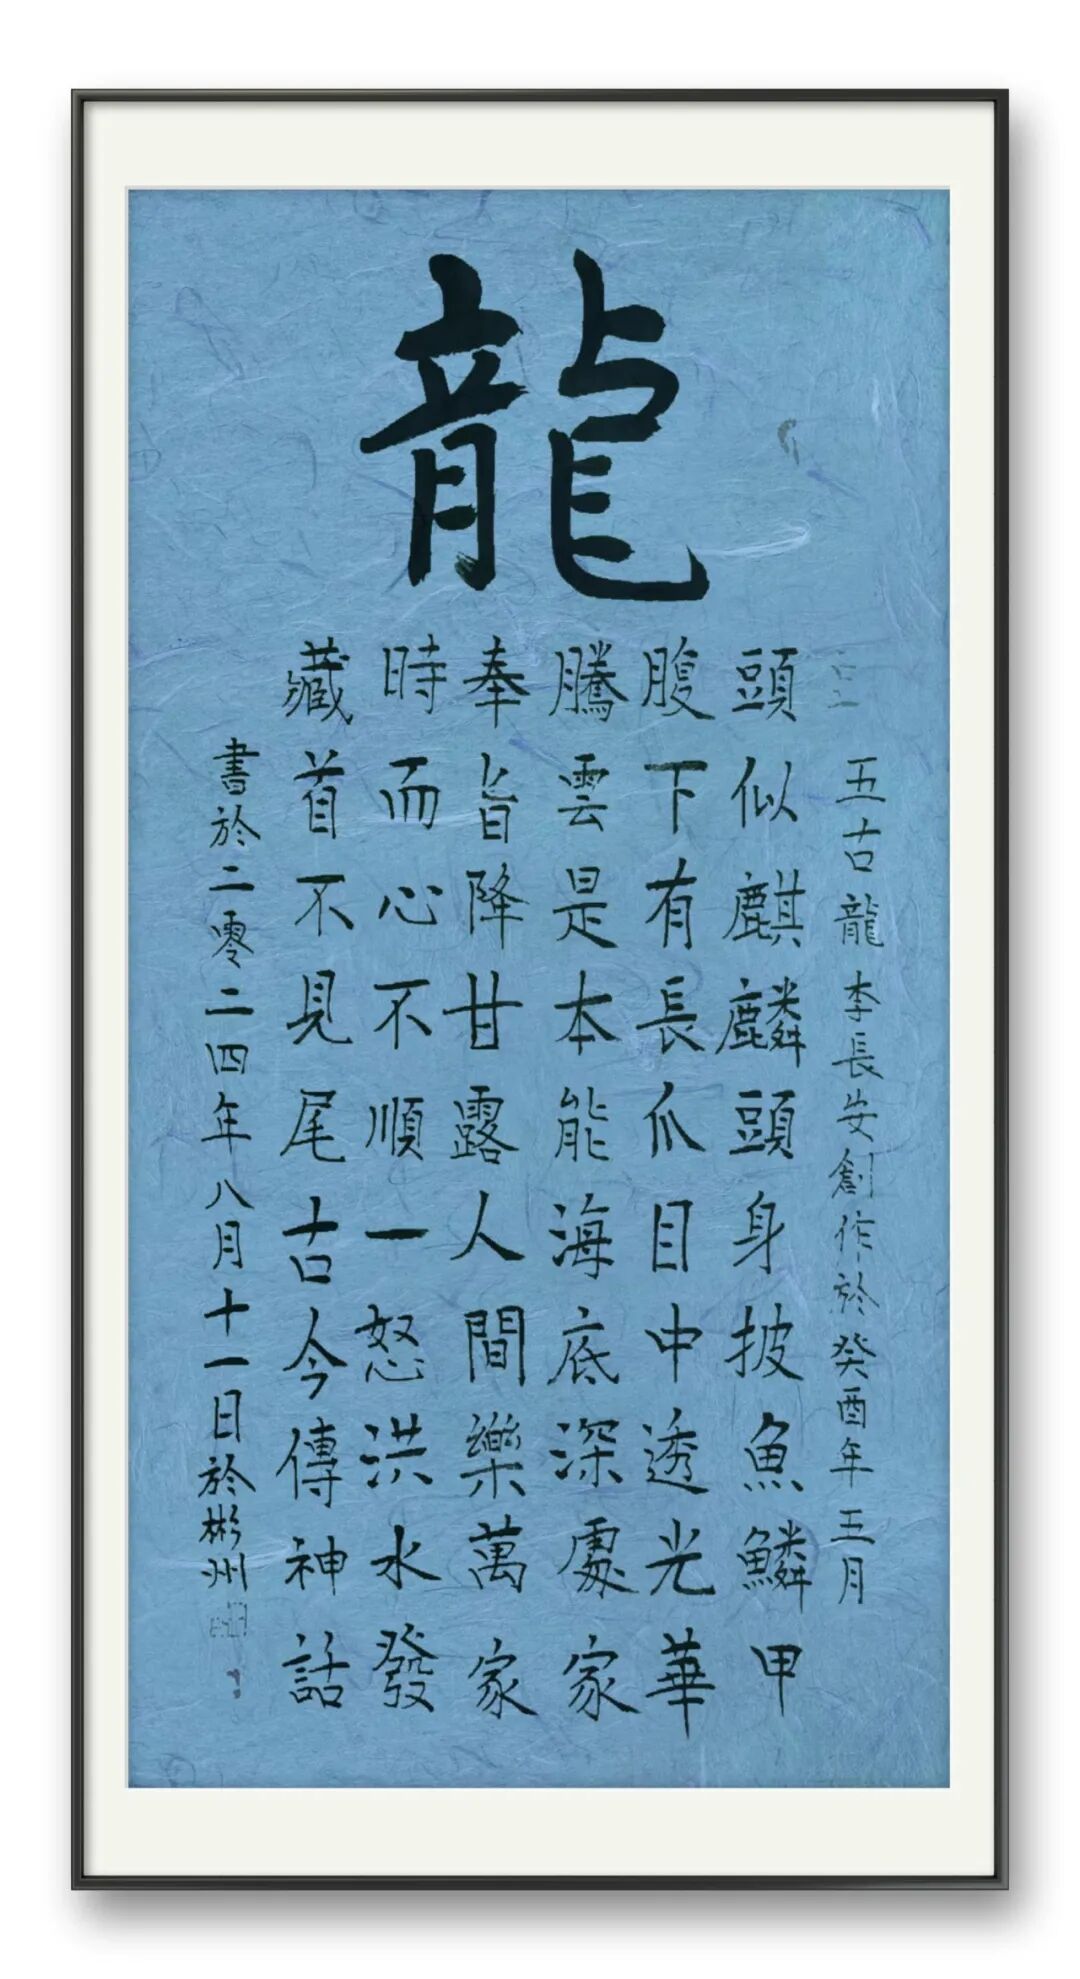 龍
五古龍李長安創作於癸酉年三月
頭似麒麟頭身披魚鱗甲
腹下有長爪目中透光華
騰雲是本能海底深處家
奉旨降甘露人間樂萬家
時而心不順一怒洪水發
藏首不見尾古今傳神話
書於二零二四年八月十一日於彬州